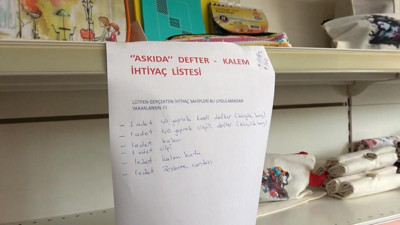 "ASKIDA" DEFTER - KALEM
İHTİYAÇ LİSTESİ
LÜTFEN GERÇEKTEN İHTİYAÇ SAHİPLERİ BU UYGULAMADAN
YARARLANSIN !!!
- 1 adet 40 yaprak kareli defter (büyük boy)
- 1 adet 40 yaprak çizgili defter (büyük boy)
- 1 adet kalem
- 1 adet silgi
- 1 adet kalem kutu
- 1 adet